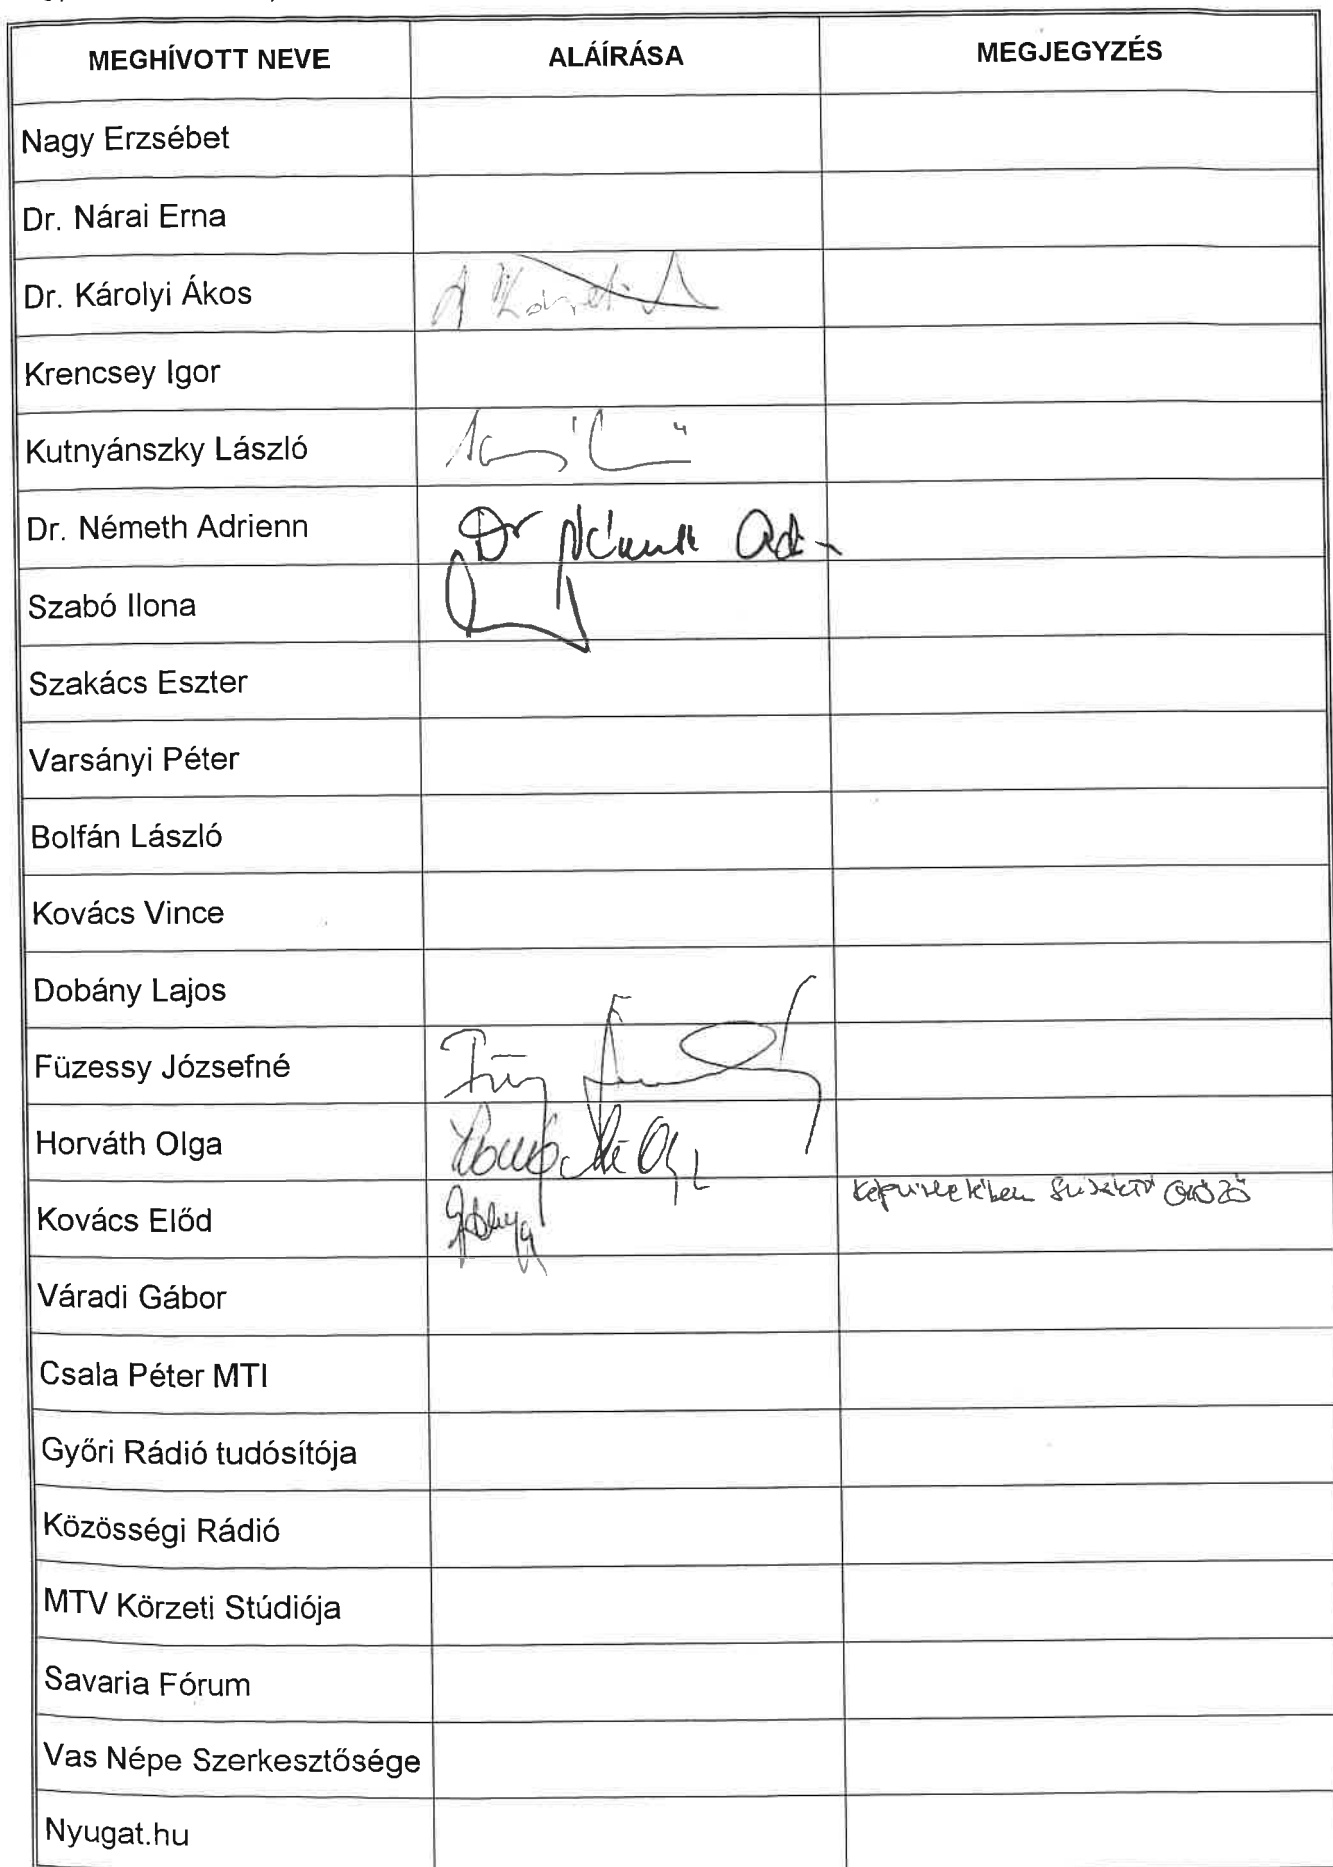 MEGHÍVOTT NEVE ALÁÍRÁSA MEGJEGYZÉS
Nagy Erzsébet
Dr. Nárai Erna
Dr. Károlyi Ákos
Krencsey Igor
Kutnyánszky László
Dr. Németh Adrienn Dr Németh Adr
Szabó Ilona
Szakács Eszter
Varsányi Péter
Bolfán László
Kovács Vince
Dobány Lajos
Füzessy Józsefné
Horváth Olga
Kovács Előd képviseletében
Váradi Gábor
Csala Péter MTI
Győri Rádió tudósítója
Közösségi Rádió
MTV Körzeti Stúdiója
Savaria Fórum
Vas Népe Szerkesztősége
Nyugat.hu